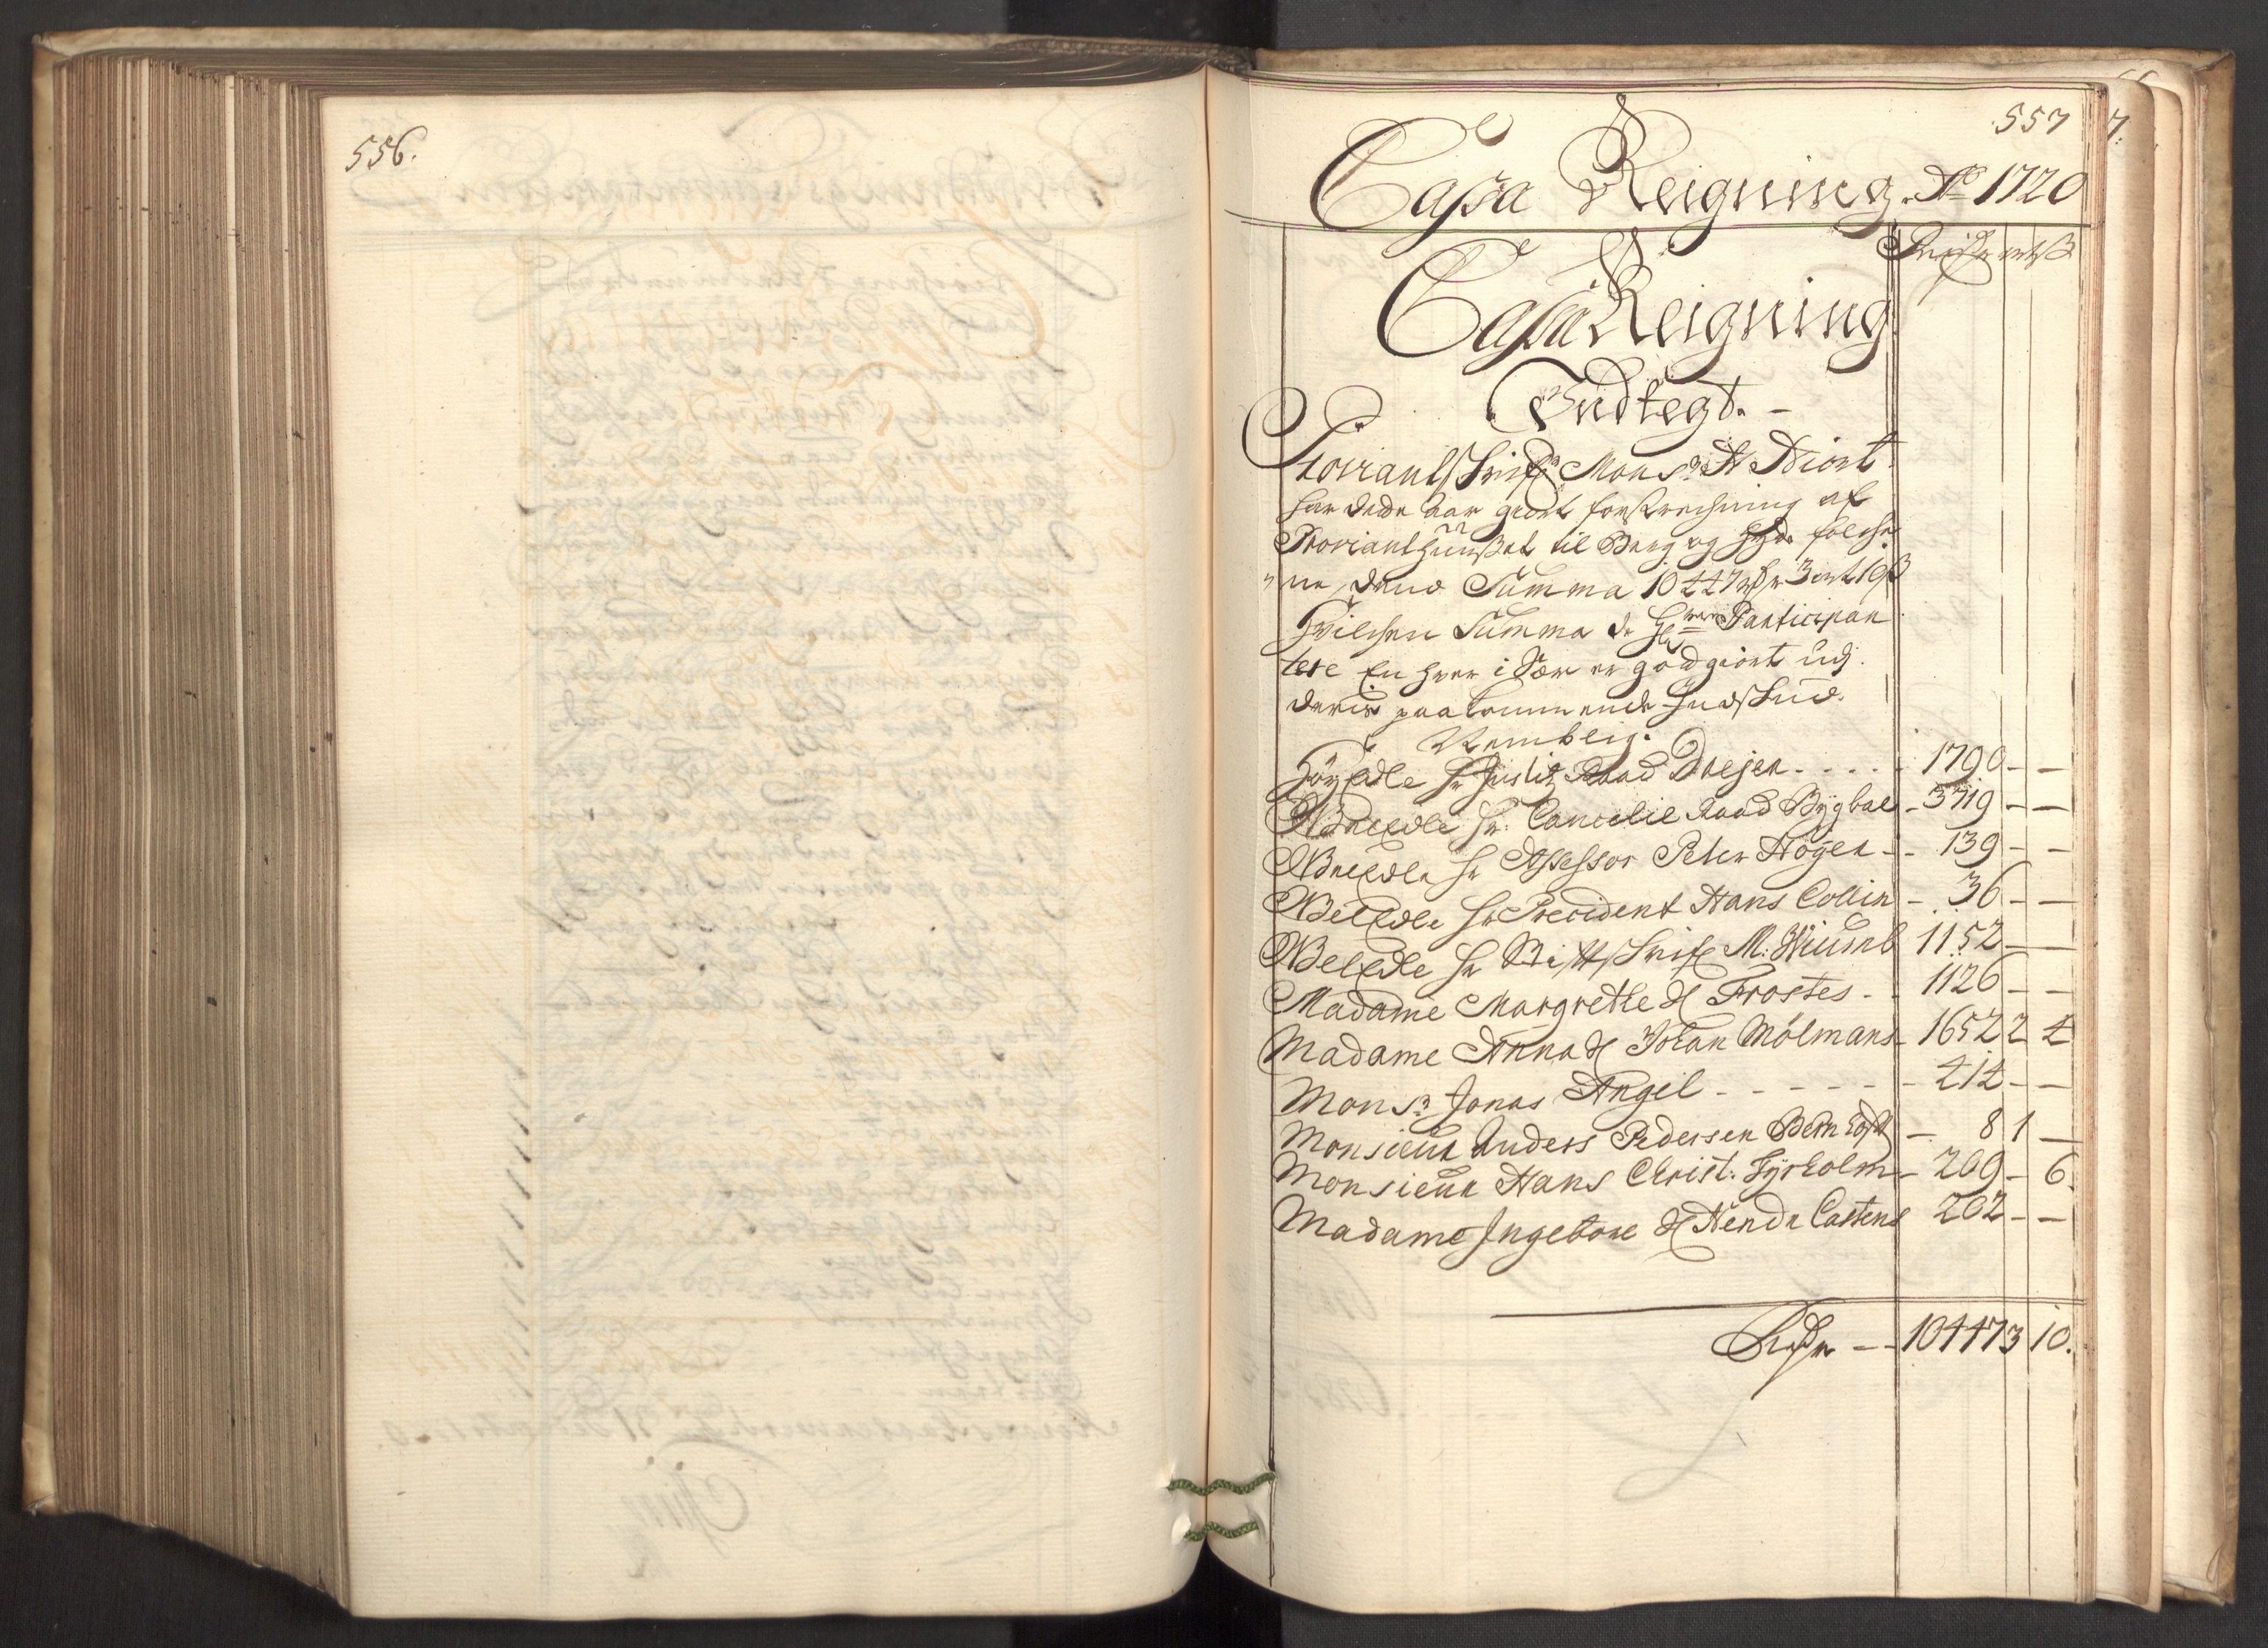 556.
557
Cassa Reigning. Ao 1720
Cassa Reigning
Indtegt. -
Proviantskrifr: Monsr: A Hiort
har dede aar giort forstrechning af
Provianthuuset til Berg og Hytte folche
ne, dend Summa 10447 rdr 3 ort 10 s
Hvilchen Summa de Hrer Participan
tere En hver i sær er godgiort udj
deris paakommende Indskud.
Nemblig.
Höyædle Hr Justitz Raad Dreyer - - - - 1790 - -
Velædle Hr: Cancelie Raad Bygbal - 3719 - -
Velædle Hr Assessor Peter Höyer - - 139 - -
Velædle Hr Precident Hans Collin - 36 - -
Velædle Hr Skrifr M: Wiumb 1152 - -
Madame Margrethe Sl Frostes - - 1126 - -
Madame Anna Sl Johan Mölmans - 1652 2 4
Monsr: Jonas Angel - - - - - - 414 - -
Monsieur Anders Pedersen - 8 1 -
Monsieur Hans Christ: Fyrholm - 209 - 6.
Madame Ingebore Sl Hendr Castens 202 - -
Rdr - - 10447 3 10.